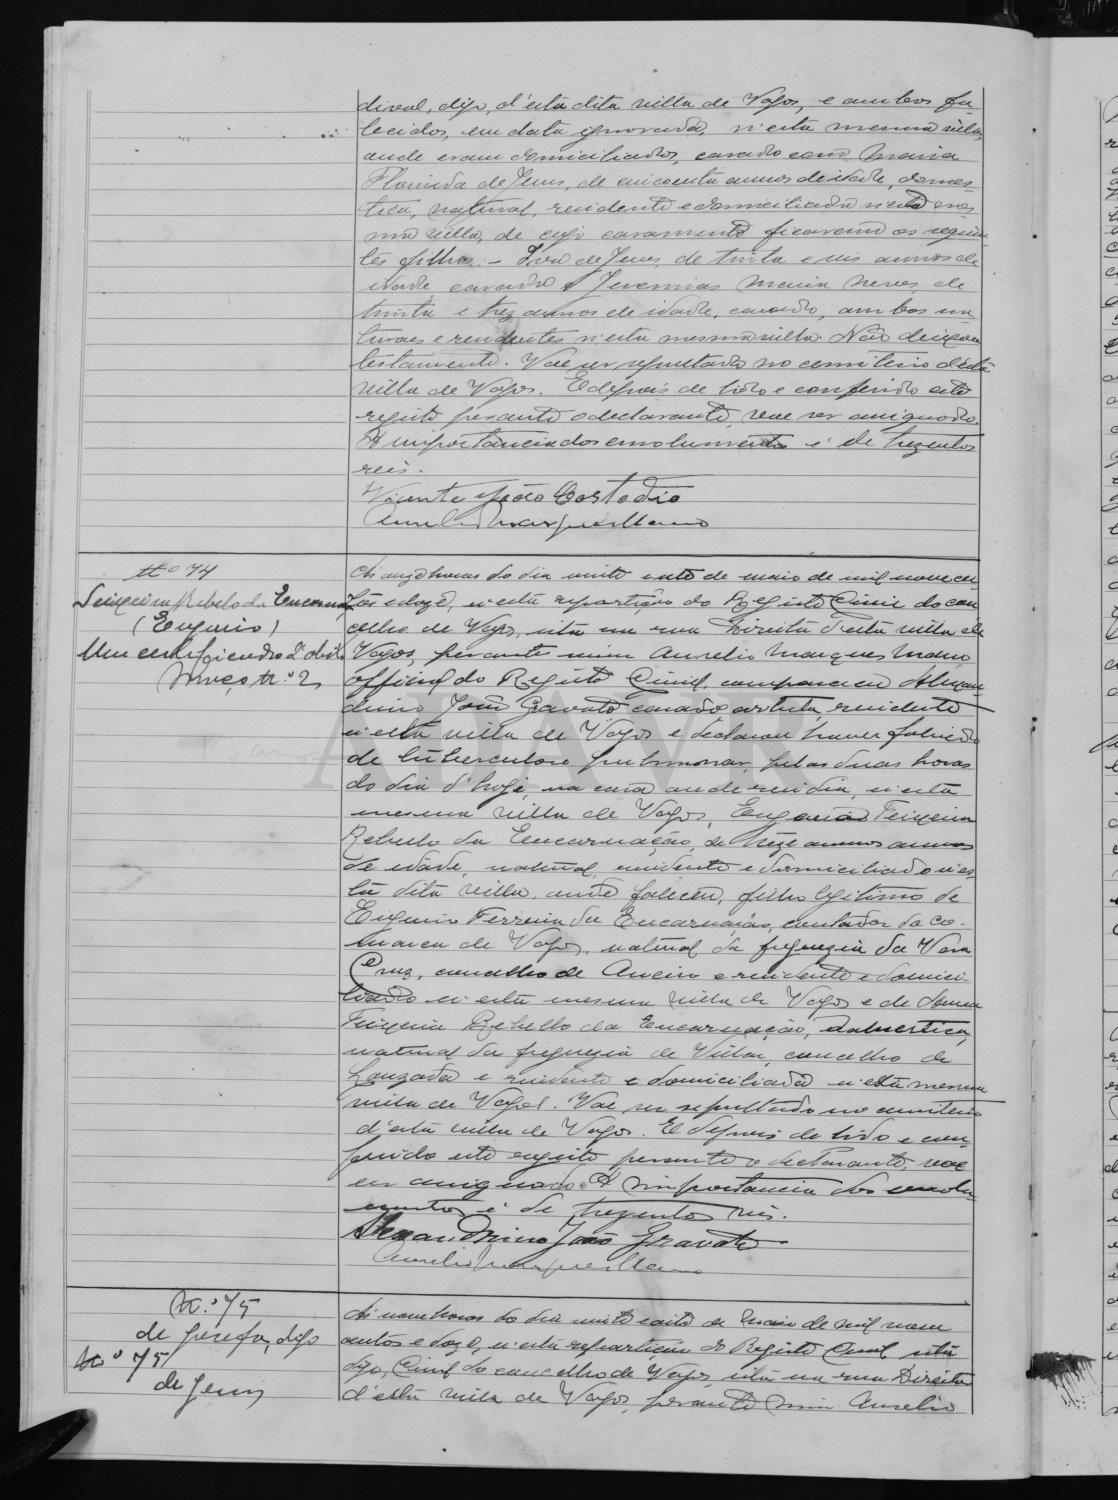 dival, digo, d'esta dita villa de Vagos, e ambos fa-
lecidos, em data ignorada, n'esta mesma villa,
onde eram domiciliados, casado com Maria
Florinda de Jesus, de cincoenta annos de idade, domes-
tica, natural, residente e domiciliada n'esta mes-
ma villa, de cujo casamento ficaram os seguin-
tes filhos: - João de Jesus, de trinta e seis annos de
idade casado e Jeremias Maria Neves, de
trinta e trez annos de idade, casado, ambos na-
turaes e residentes n'esta mesma villa. Não deixou
testamento. Vae ser sepultado no cemiterio d'esta
villa de Vagos. E depois de lido e conferido este
registo perante o declarante, vae ser assignado.
A importancia dos emolumentos é de trezentos
reis.
Vicente João Costodio
Aurelio Marques Mano
Nº 74
Teixeira Rebelo da Encarnação
(Eugenio)
Um certificado d'obito
Maço N.º 2
Ás onze horas do dia vinte e oito de maio de mil novecen-
tos e doze, n'esta repartição do Registo Civil do con-
celho de Vagos, sita na rua Direita d'esta villa de
Vagos, perante mim Aurelio Marques Mano,
official do Registo Civil, compareceu Alexan-
drino João Gravato casado artista, residente
n'esta villa de Vagos e declarou haver falecido
de tuberculose pulmonar, pelas duas horas
do dia d'hoje, na casa onde residia, n'esta
mesma villa de Vagos, Eugenio Teixeira
Rebello da Encarnação, de treze annos annos
de idade, natural, residente e domiciliado n'es-
ta dita villa, onde faleceu, filho legitimo de
Eugenio Ferreira da Encarnação, contador da co-
marca de Vagos, natural da freguezia da Vera
Cruz, concelho de Aveiro e residente e domici-
liado n'esta mesma villa de Vagos e de
Teixeira Rebello da Encarnação, domestica,
natural da freguezia de Villar, concelho de
Louzada e residente e domiciliada n'esta mesma
villa de Vagos. Vae ser sepultado no cemiterio
d'esta villa de Vagos. E depois de lido e con-
ferido este registo perante o declarante, vae
ser assignado. A importancia dos emolu-
mentos é de trezentos reis.
Alexandrino João Gravato
Aurelio Marques Mano
N.º 75
de Josefa, digo
Nº 75
de Jesus
Ás nove horas do dia vinte e oito de maio de mil nove-
centos e doze, n'esta repartição do Registo Civil sita
digo, Civil do concelho de Vagos, sita na rua Direita
d'esta villa de Vagos, perante mim Aurelio
AHAVR